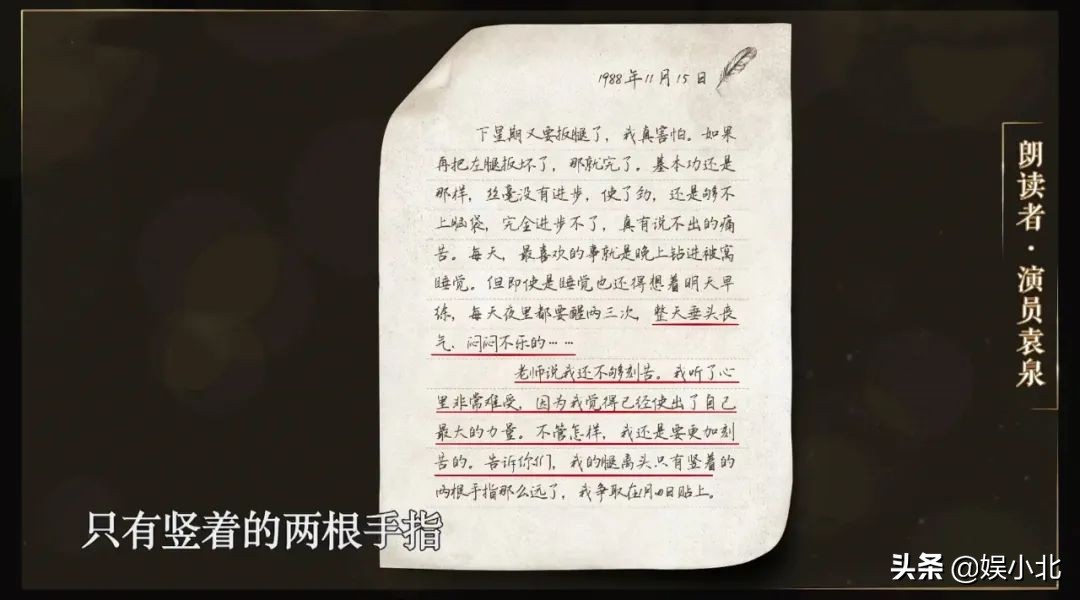 1988年11月15日
下星期又要扳腿了，我真害怕。如果
再把左腿扳坏了，那就完了。基本功还是
那样，丝毫没有进步，使了劲，还是够不
上脑袋，完全进步不了，真有说不出的痛
苦。每天，最喜欢的事就是晚上钻进被窝
睡觉。但即使是睡觉也还得想着明天早
练，每天夜里都要醒两三次，整天垂头丧
气、闷闷不乐的……
老师说我还不够刻苦。我听了心
里非常难受，因为我觉得已经使出了自己
最大的力量。不管怎样，我还是要更加刻
苦的。告诉你们，我的腿离头只有竖着的
两根手指那么远了，我争取在月日贴上。
朗读者·演员袁泉
只有竖着的两根手指
头条 @娱小北